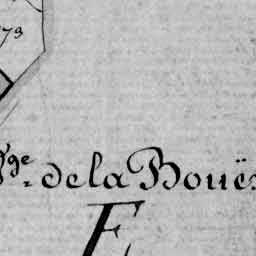 73
ge de la Bouë
F